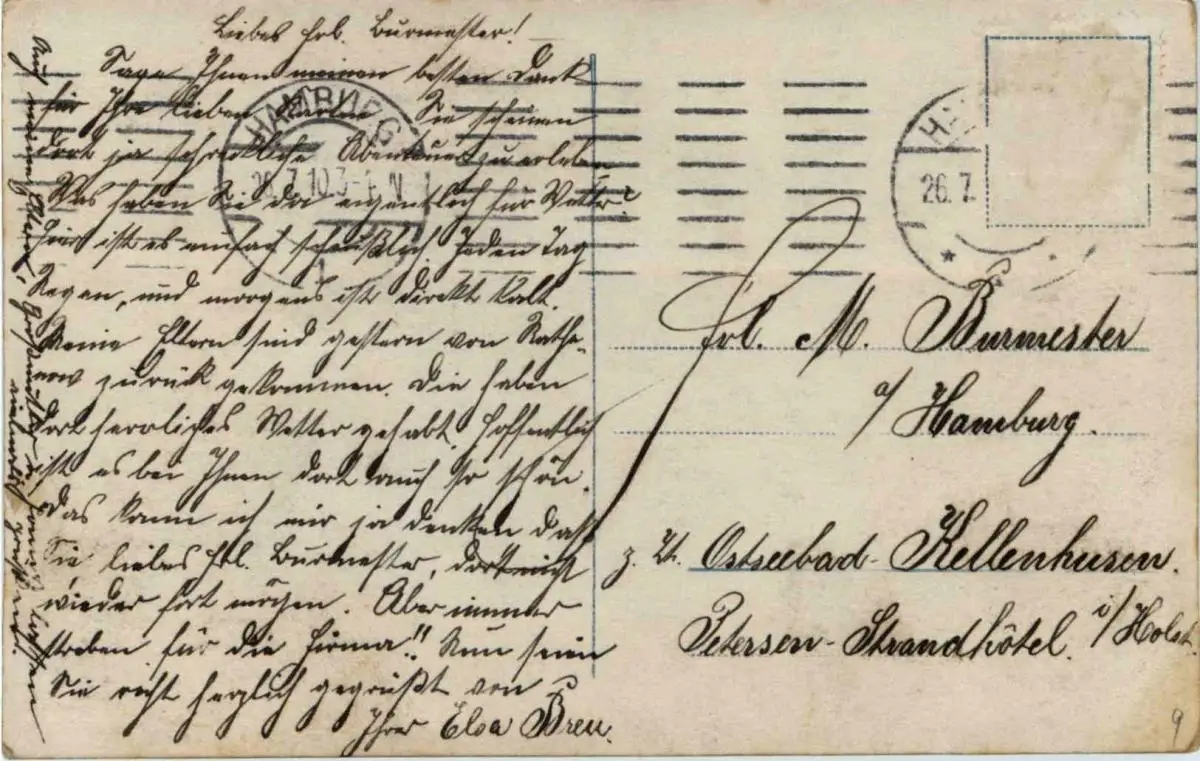 Liebes Frl. Burmester!
Sage Ihnen meinen besten Dank
für Ihre lieben Karten. Sie scheinen
dort ja schreckliche Abenteuer zu erleben
Was haben Sie da eigentlich für Wetter?
Hier ist es einfach scheußlich. Jeden Tag
Regen, und morgens ist direkt kalt.
Meine Eltern sind gestern von Rathe-
now zurück gekommen. Die haben
dort herrliches Wetter gehabt. Hoffentlich
ist es bei Ihnen dort auch so schön.
Das kann ich mir ja denken daß
Sie liebes Frl. Burmester, dort nicht
wieder fort mögen. Aber immer
streben für die Firma!! Nun seien
Sie recht herzlich gegrüßt von
Ihrer Elsa Breu.
Auf meine
grüßen
HAMBURG
26.7.10.3-4 N
1
HA
26.7.
Frl. M. Burmester
a/ Hamburg.
z. Zt. Ostseebad-Kellenhusen.
Petersen-Strandhôtel. i/Holst.
9